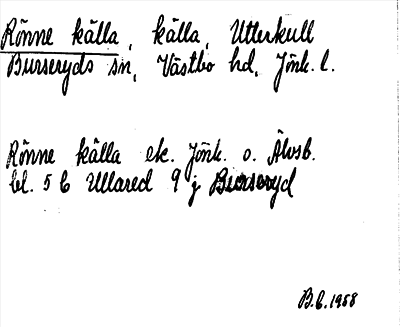 Rönne källa, källa, Utterkull
Burseryds sn, Västbo hd, Jönk. l.
Rönne källa ek. Jönk. o. Älvsb.
bl. 5 C Ullared 9 j Burseryd
B.C. 1958